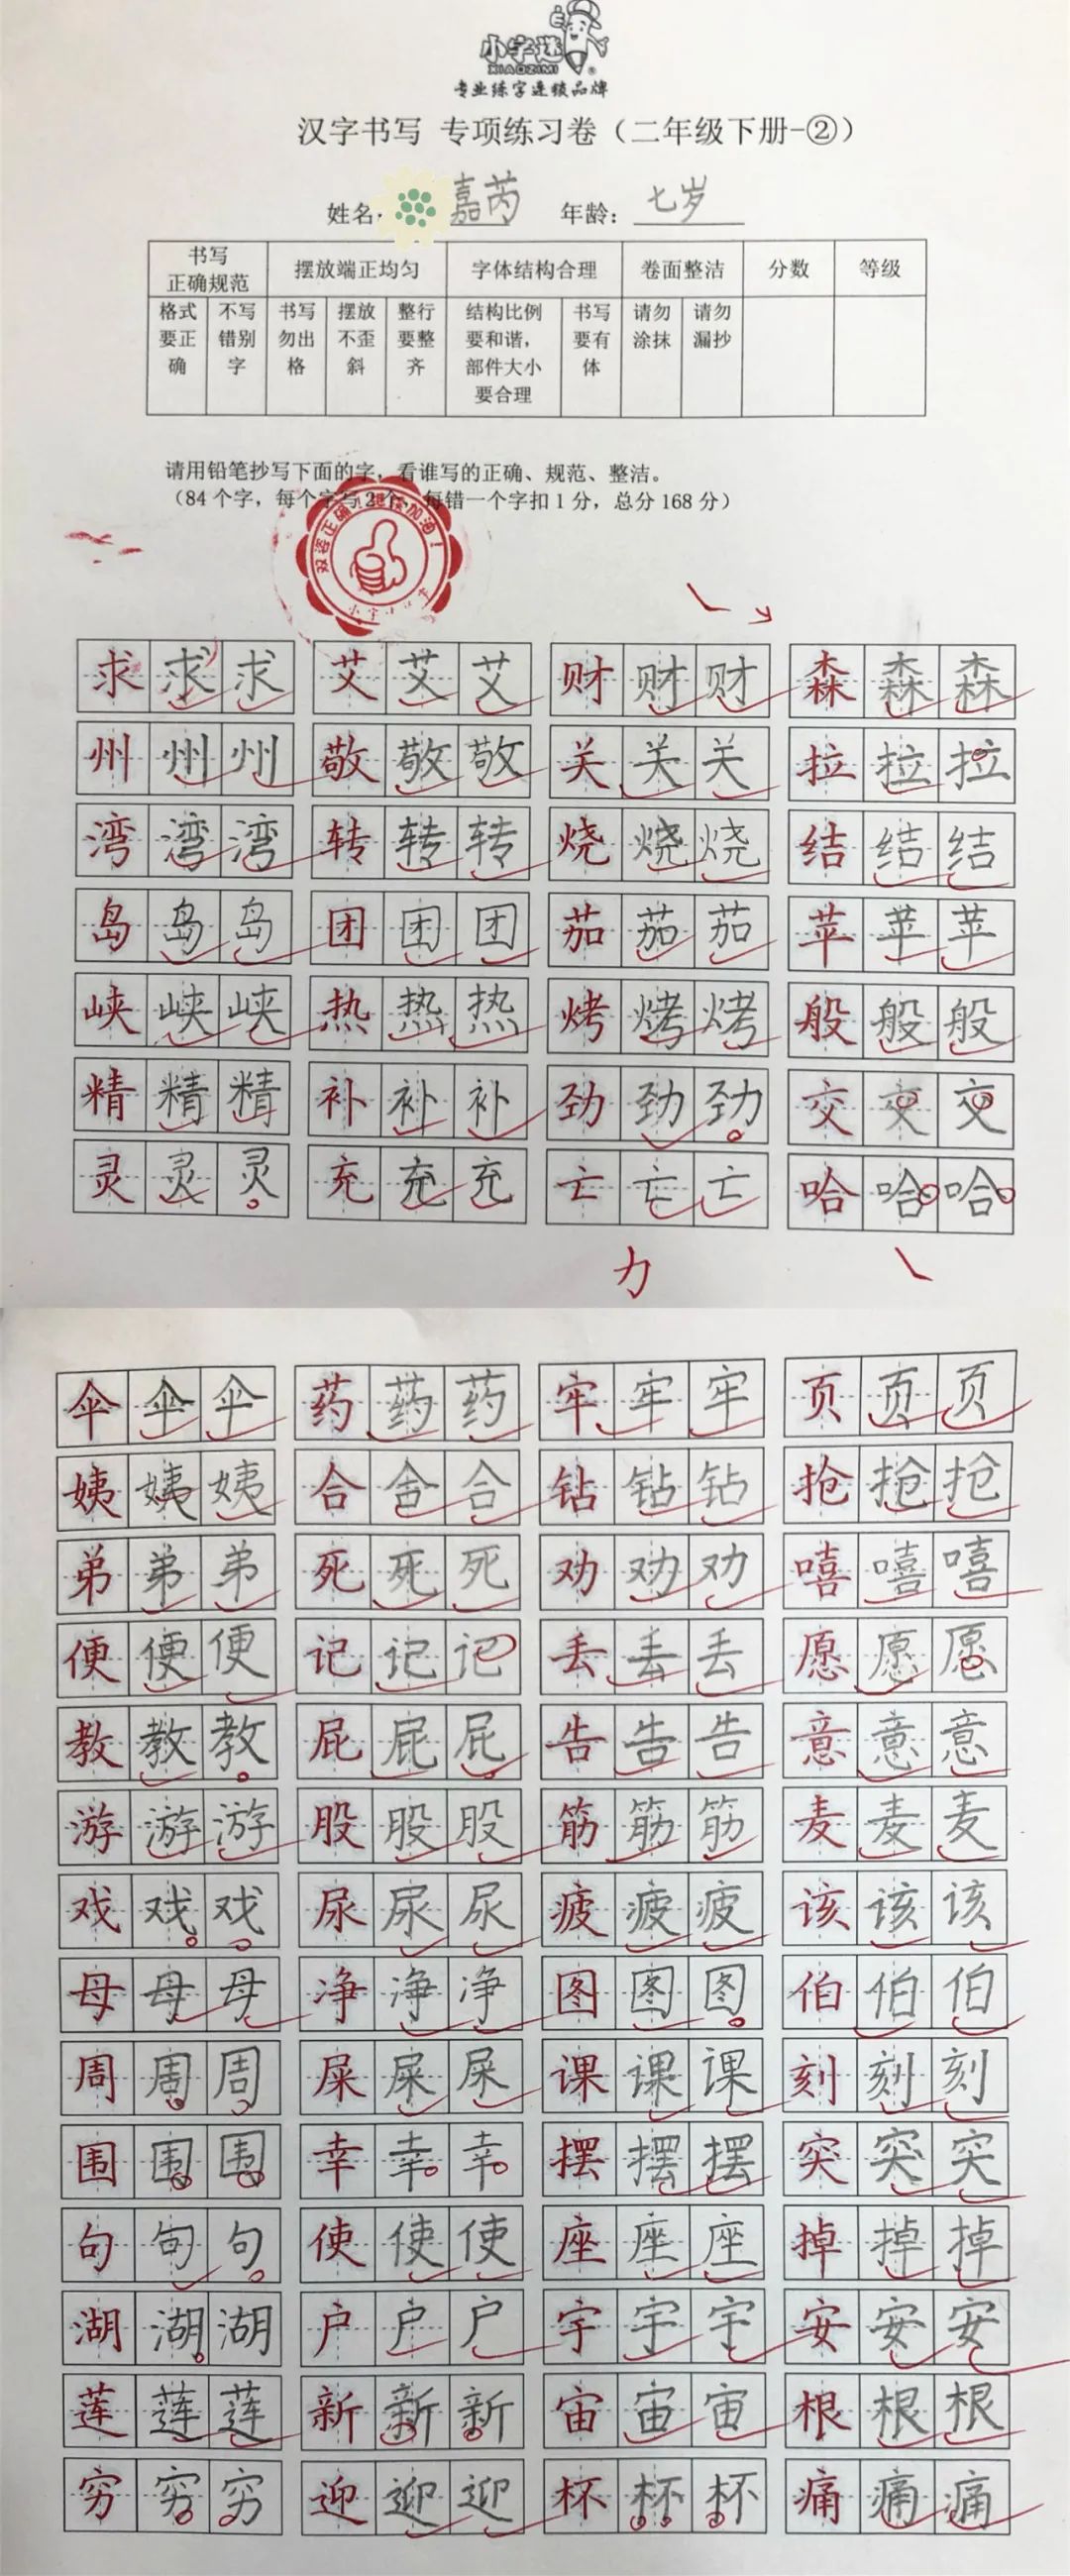 小字迷
XIAOZIMI
专业练字连锁品牌
汉字书写 专项练习卷（二年级下册-②）
姓名: 嘉芮 年龄: 七岁
书写正确规范 摆放端正均匀 字体结构合理 卷面整洁 分数 等级
格式要正确 不写错别字 书写勿出格 摆放不歪斜 整行要整齐 结构比例要和谐，部件大小要合理 书写要有体 请勿涂抹 请勿漏抄
请用铅笔抄写下面的字，看谁写的正确、规范、整洁。
（84个字，每个字写2个，每错一个字扣1分，总分168分）
双姿正确 加油！
求求求 艾艾艾 财财财 森森森
州州州 敬敬敬 关关关 拉拉拉
湾湾湾 转转转 烧烧烧 结结结
岛岛岛 团团团 茄茄茄 苹苹苹
峡峡峡 热热热 烤烤烤 般般般
精精精 补补补 劲劲劲 交交交
灵灵灵 充充充 亡亡亡 哈哈哈
力
伞伞伞 药药药 牢牢牢 页页页
姨姨姨 合合合 钻钻钻 抢抢抢
弟弟弟 死死死 劝劝劝 嘻嘻嘻
便便便 记记记 丢丢丢 愿愿愿
教教教 屁屁屁 告告告 意意意
游游游 股股股 筋筋筋 麦麦麦
戏戏戏 尿尿尿 疲疲疲 该该该
母母母 净净净 图图图 伯伯伯
周周周 屎屎屎 课课课 刻刻刻
围围围 幸幸幸 摆摆摆 突突突
句句句 使使使 座座座 掉掉掉
湖湖湖 户户户 宇宇宇 安安安
莲莲莲 新新新 宙宙宙 根根根
穷穷穷 迎迎迎 杯杯杯 痛痛痛